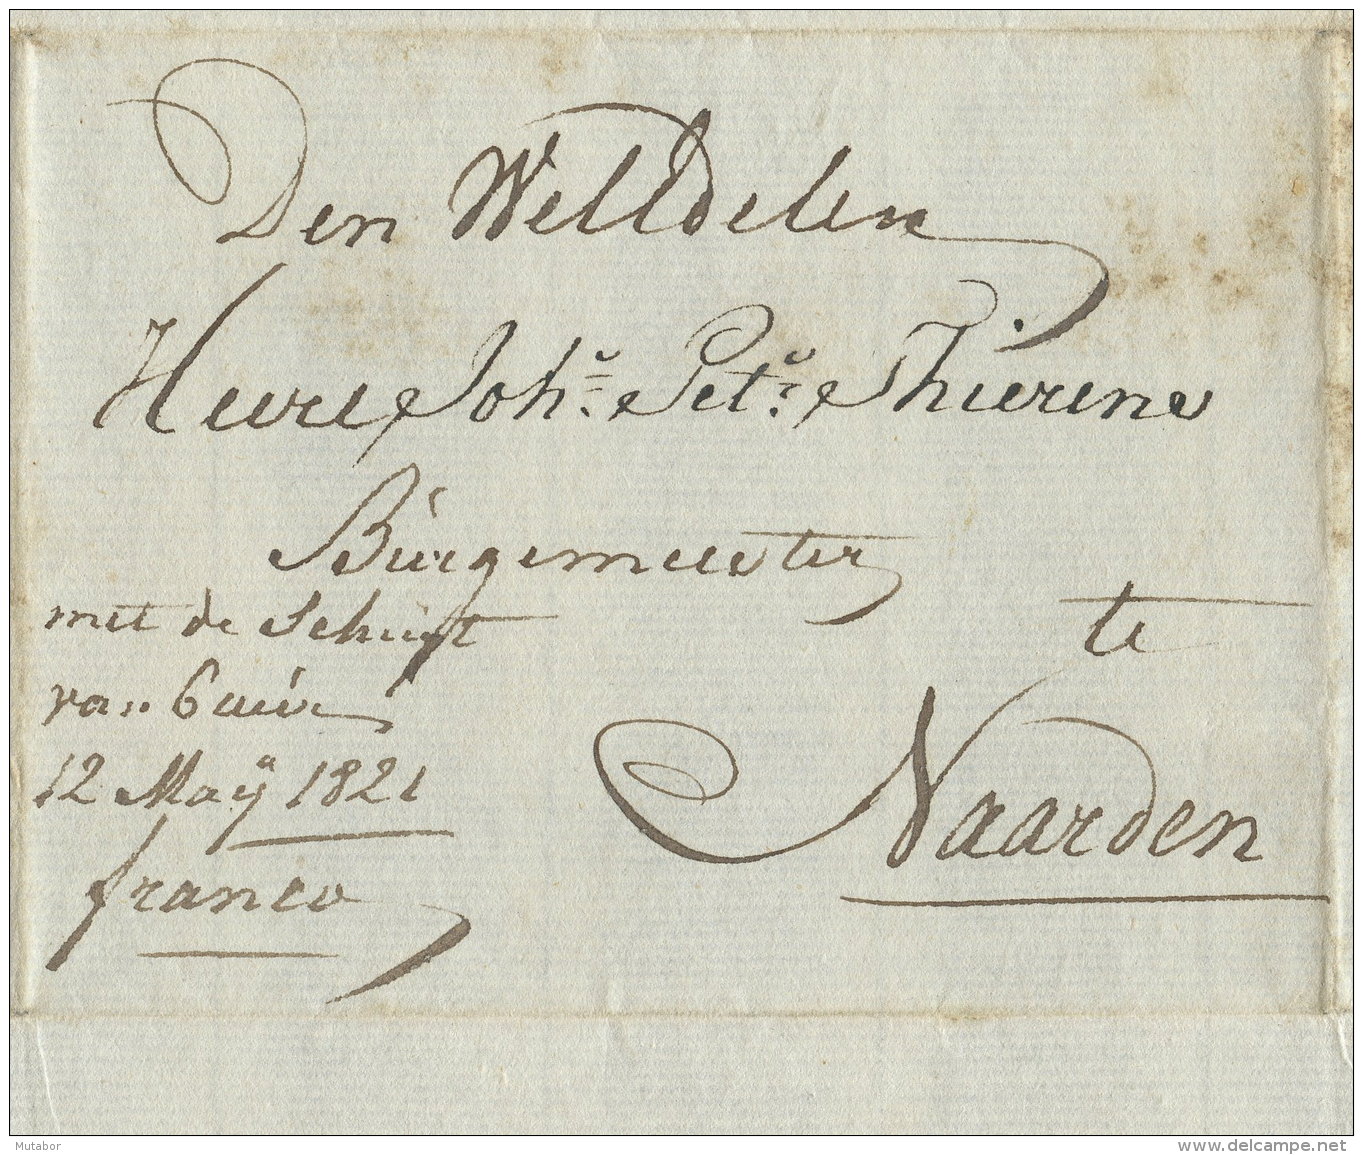 Den WelEdelen
Heere Joh:s Pet:r Thierens
Burgemeester
te
Naarden
met de Schuijt
van 6 uur
12 Maij 1821
franco
Mutabor
www.delcampe.net